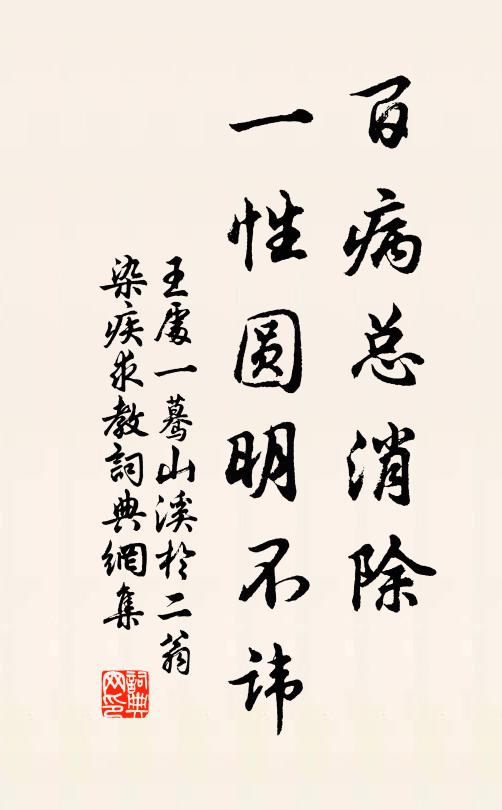 百病总消除
一性圆明不讳
王處一驀山溪於二翁
染疾求教詞典網集
詞典网印